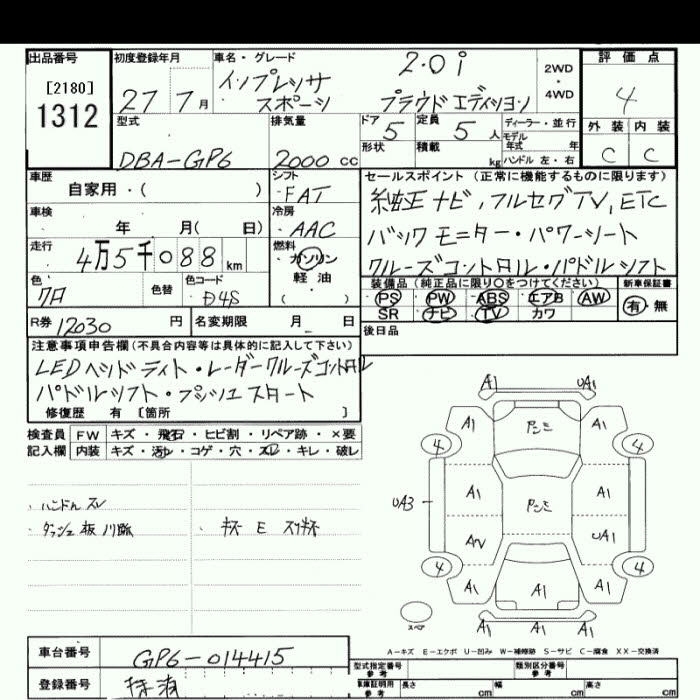 出品番号
[2180]
1312
初度登録年月
27 7月
車名・グレード
インプレッサ 2.0i
スポーツ プラウドエディション
2WD
・
4WD
評価点
4
外装 内装
C C
型式
DBA-GP6
排気量
2000 cc
ドア 5
定員 5 人
形状
積載 kg
ディーラー・並行
モデル
年式 年
ハンドル 左・右
車歴
自家用・( )
シフト
FAT
車検
年 月( 日)
冷房
AAC
走行
4万5千088 km
燃料
ガソリン
軽油
( )
色
クロ
色替
色コード
D4S
R券 12030 円
名変期限 月 日
セールスポイント (正常に機能するものに限ります)
純正ナビ,フルセグTV,ETC
バックモニター・パワーシート
クルーズコントロル・パドルシフト
装備品(純正品に限り〇をつけてください)
PS PW ABS エアB AW
SR ナビ TV カワ
新車保証書
有・無
後日品
注意事項申告欄(不具合内容等は具体的に記入して下さい)
LEDヘッドライト・レーダークルーズコントロル
パドルシフト・プッシュスタート
修復歴 有 [箇所 ]
検査員 FW キズ・飛石・ヒビ割・リペア跡・×要
記入欄 内装 キズ・汚レ・コゲ・穴・スレ・キレ・破レ
・ハンドルスレ
A1 UA1
A1 A1
4 4
A1 A1
UA3
UA1
4 4
A1 A1 A1
A1 A1 A1
スペア
A-キズ E-エクボ U-凹み W-補修跡 S-サビ C-腐食 XX-交換済
車台番号
GP6-014415
登録番号
抹消
型式指定番号
参考
類別区分番号
参考
車庫証明用
参考
長さ cm 幅 cm 高さ cm